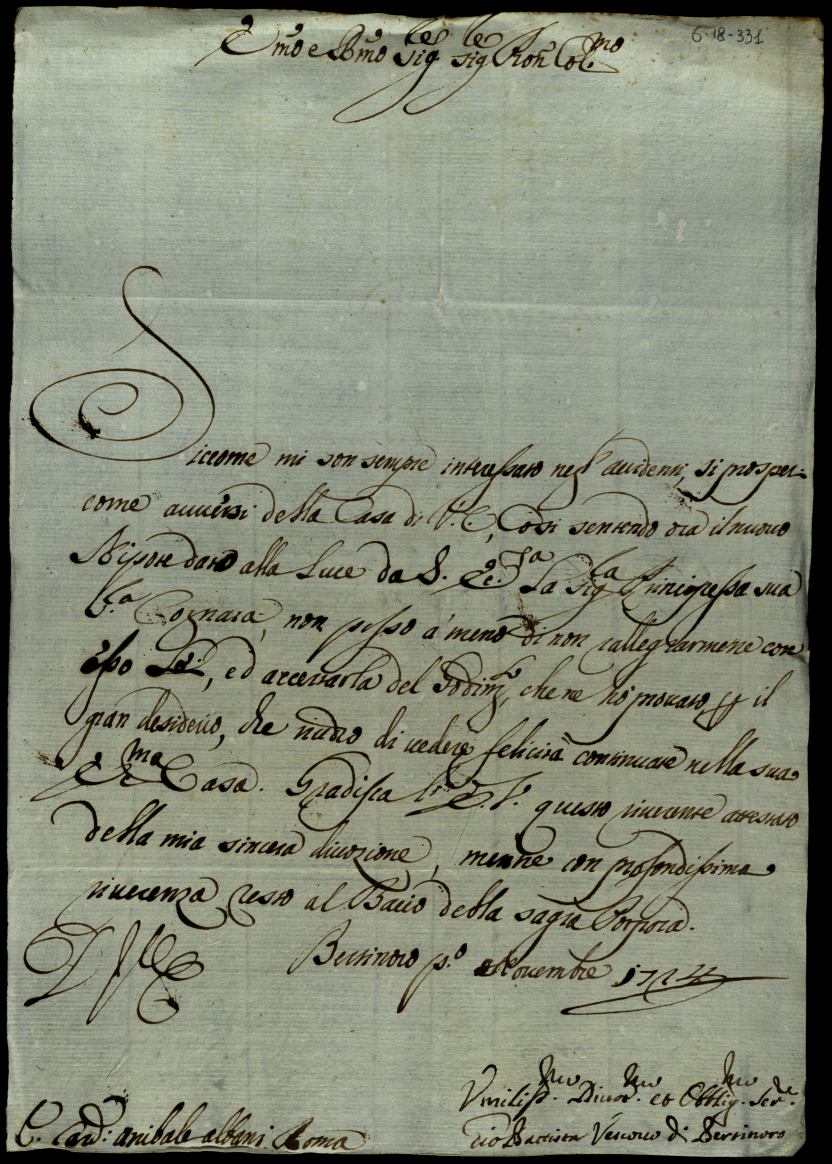 6-18-331
E.mo e R.mo Sig.re Sig.re P.ron Col.mo
Siccome mi son sempre interessato negl' accidenti, si prosperi
come avversi della Casa di V. E., Così sentendo ora il nuovo
Nipote dato alla Luce da S. Ecc.za La Sig.ra Principessa sua
Sig.ra Cognata, non posso a' meno di non rallegrarmene con
Esso Lei, ed accertarla del Godim.to, che ne hò provato, p il
gran desiderio, che nudro di vedere felicità continuate nella sua
Ecc.ma Casa. Gradisca l' E. V. questo riverente attestato
della mia sincera divozione, mentre con profondissima
riverenza resto al Bacio della sagra Porpora.
D. V. E. Bertinoro p.o Novembre 1724
Vmiliss.mo Divot.mo et Obblig.mo Ser.re
E. Card: anibale albani Roma
Gio Battista Vescovo di Bertinoro